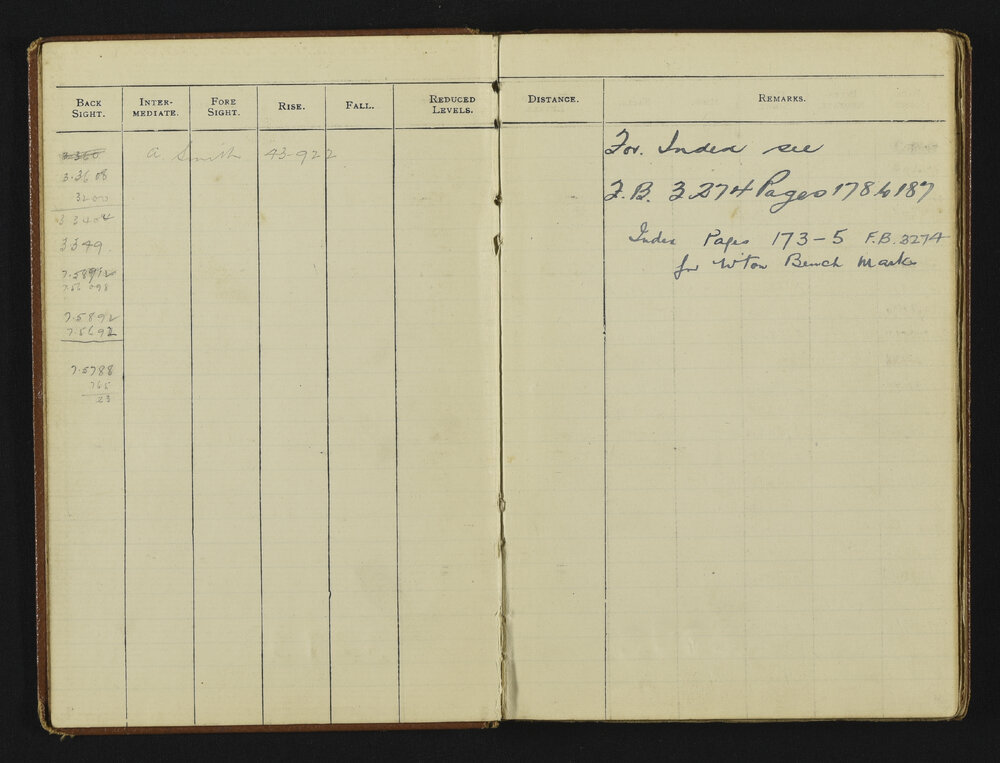 BACK SIGHT.
INTER-MEDIATE.
FORE SIGHT.
RISE.
FALL.
REDUCED LEVELS.
DISTANCE.
REMARKS.
3.360
A. Smith 43-922
3.3608
3200
3 3404
3349.
7.58912
7.56 098
7.5892
7.5692
7.5788
765
23
For. Index see
F.B. 3274 Pages 178 to 187
Index Pages 173-5 F.B. 3274
for W'ton Bench Marks